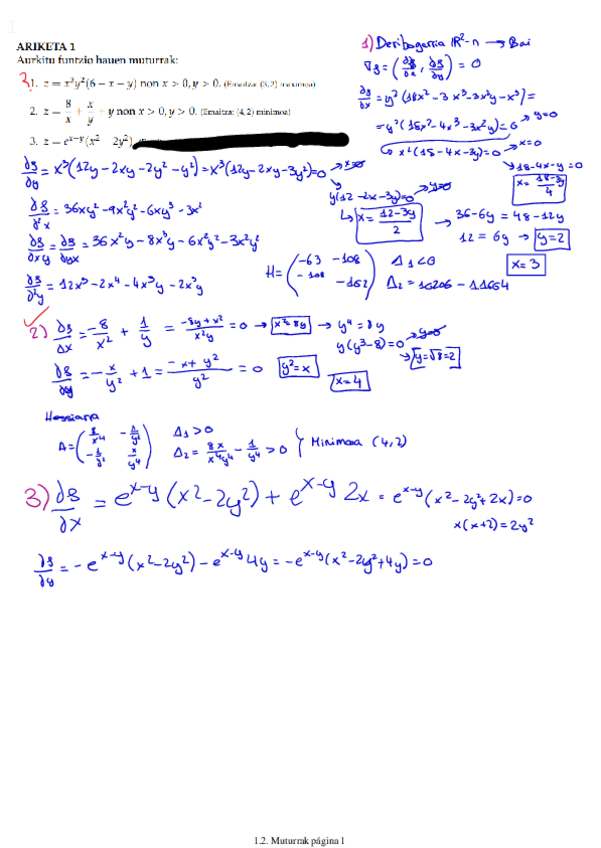 1
ARIKETA 1
Aurkitu funtzio hauen muturrak:
1. z = x³y²(6 − x − y) non x > 0, y > 0. (Emaitza: (3, 2) maximoa)
2. z = 8/x + x/y + y non x > 0, y > 0. (Emaitza: (4, 2) minimoa)
3. z = e^(x−y)(x² 2y²)
1) Deribagarria IR²-n → Bai
∇f = (∂f/∂x, ∂f/∂y) = 0
∂f/∂x = y²(18x² − 3x³ − 3x²y − x³) =
= y²(18x² − 4x³ − 3x²y) = 0 → y=0
x²(18 − 4x − 3y) = 0 → x=0
18−4x−y = 0
x = (18−3y)/4
∂f/∂y = x³(12y − 2xy − 2y² − y²) = x³(12y − 2xy − 3y²) = 0 → x=0
y(12 − 2x − 3y) = 0 → y=0
x = (12−3y)/2 → 36−6y = 48−12y
12 = 6y → y=2
x=3
∂f/∂²x = 36xy² − 9x²y² − 6xy³ − 3x²
∂f/∂xy = ∂f/∂yx = 36x²y − 8x³y − 6x²y² − 3x²y²
∂f/∂²y = 12x³ − 2x⁴ − 4x³y − 2x³y
H = (−63 −108
−108 −162) Δ₁<0
Δ₂ = 10206 − 11664
2) ∂f/∂x = −8/x² + 1/y = (−8y + x²)/(x²y) = 0 → x²=8y → y⁴ = 8y
y(y³−8) = 0 → y=0
y = ∛8 = 2
∂f/∂y = −x/y² + 1 = (−x + y²)/y² = 0 y²=x x=4
Hessiarra
A = (8/x⁴ −1/y²
−1/y² x/y⁴) Δ₁ > 0
Δ₂ = 8x/(x⁴y⁴) − 1/y⁴ > 0 } Minimoa (4,2)
3) ∂f/∂x = e^(x−y)(x²−2y²) + e^(x−y) 2x = e^(x−y)(x²−2y²+2x) = 0
x(x+2) = 2y²
∂f/∂y = −e^(x−y)(x²−2y²) − e^(x−y)4y = −e^(x−y)(x²−2y²+4y) = 0
1.2. Muturrak página 1